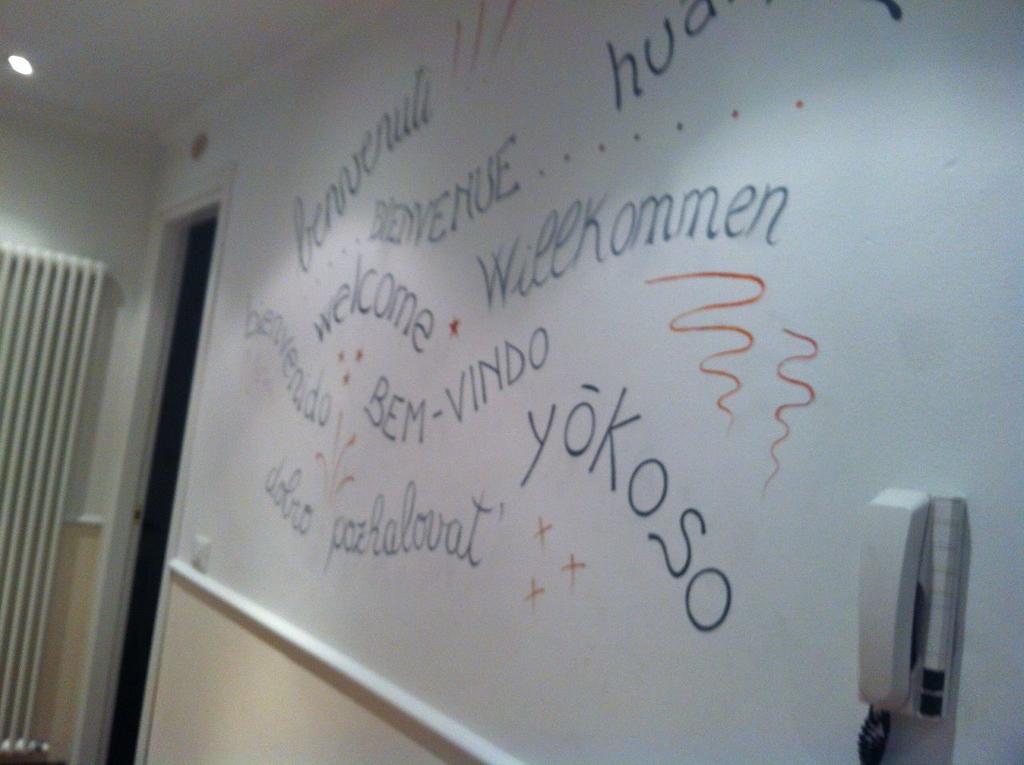 benvenuti
BIENVENUE
Willkommen
welcome
bienvenido
BEM-VINDO
yōkoso
dobro pozhalovat'